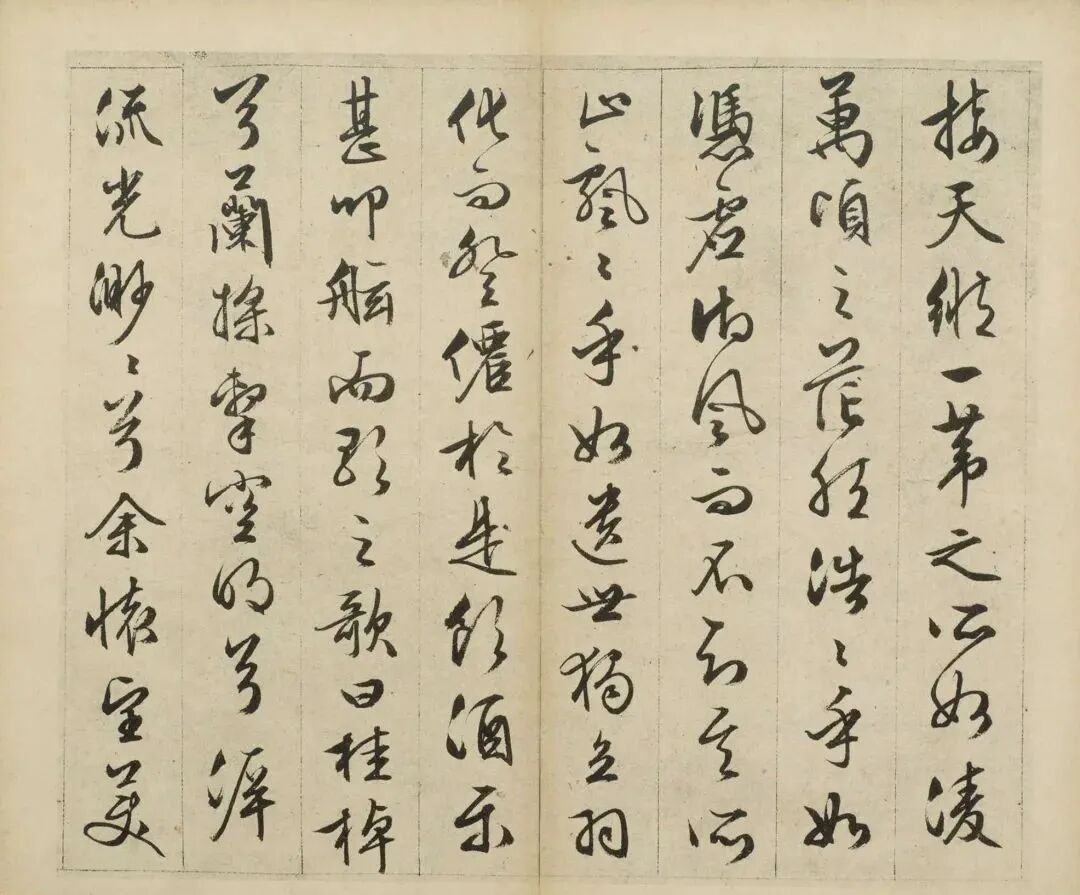 接天縱一葦之所如淩
萬頃之茫然浩〻乎如
憑虛御風而不知其所
止飄〻乎如遺世獨立羽
化而登僊於是飲酒樂
甚叩舷而歌之歌曰桂棹
兮蘭槳擊空明兮泝
流光渺〻兮余懷望美